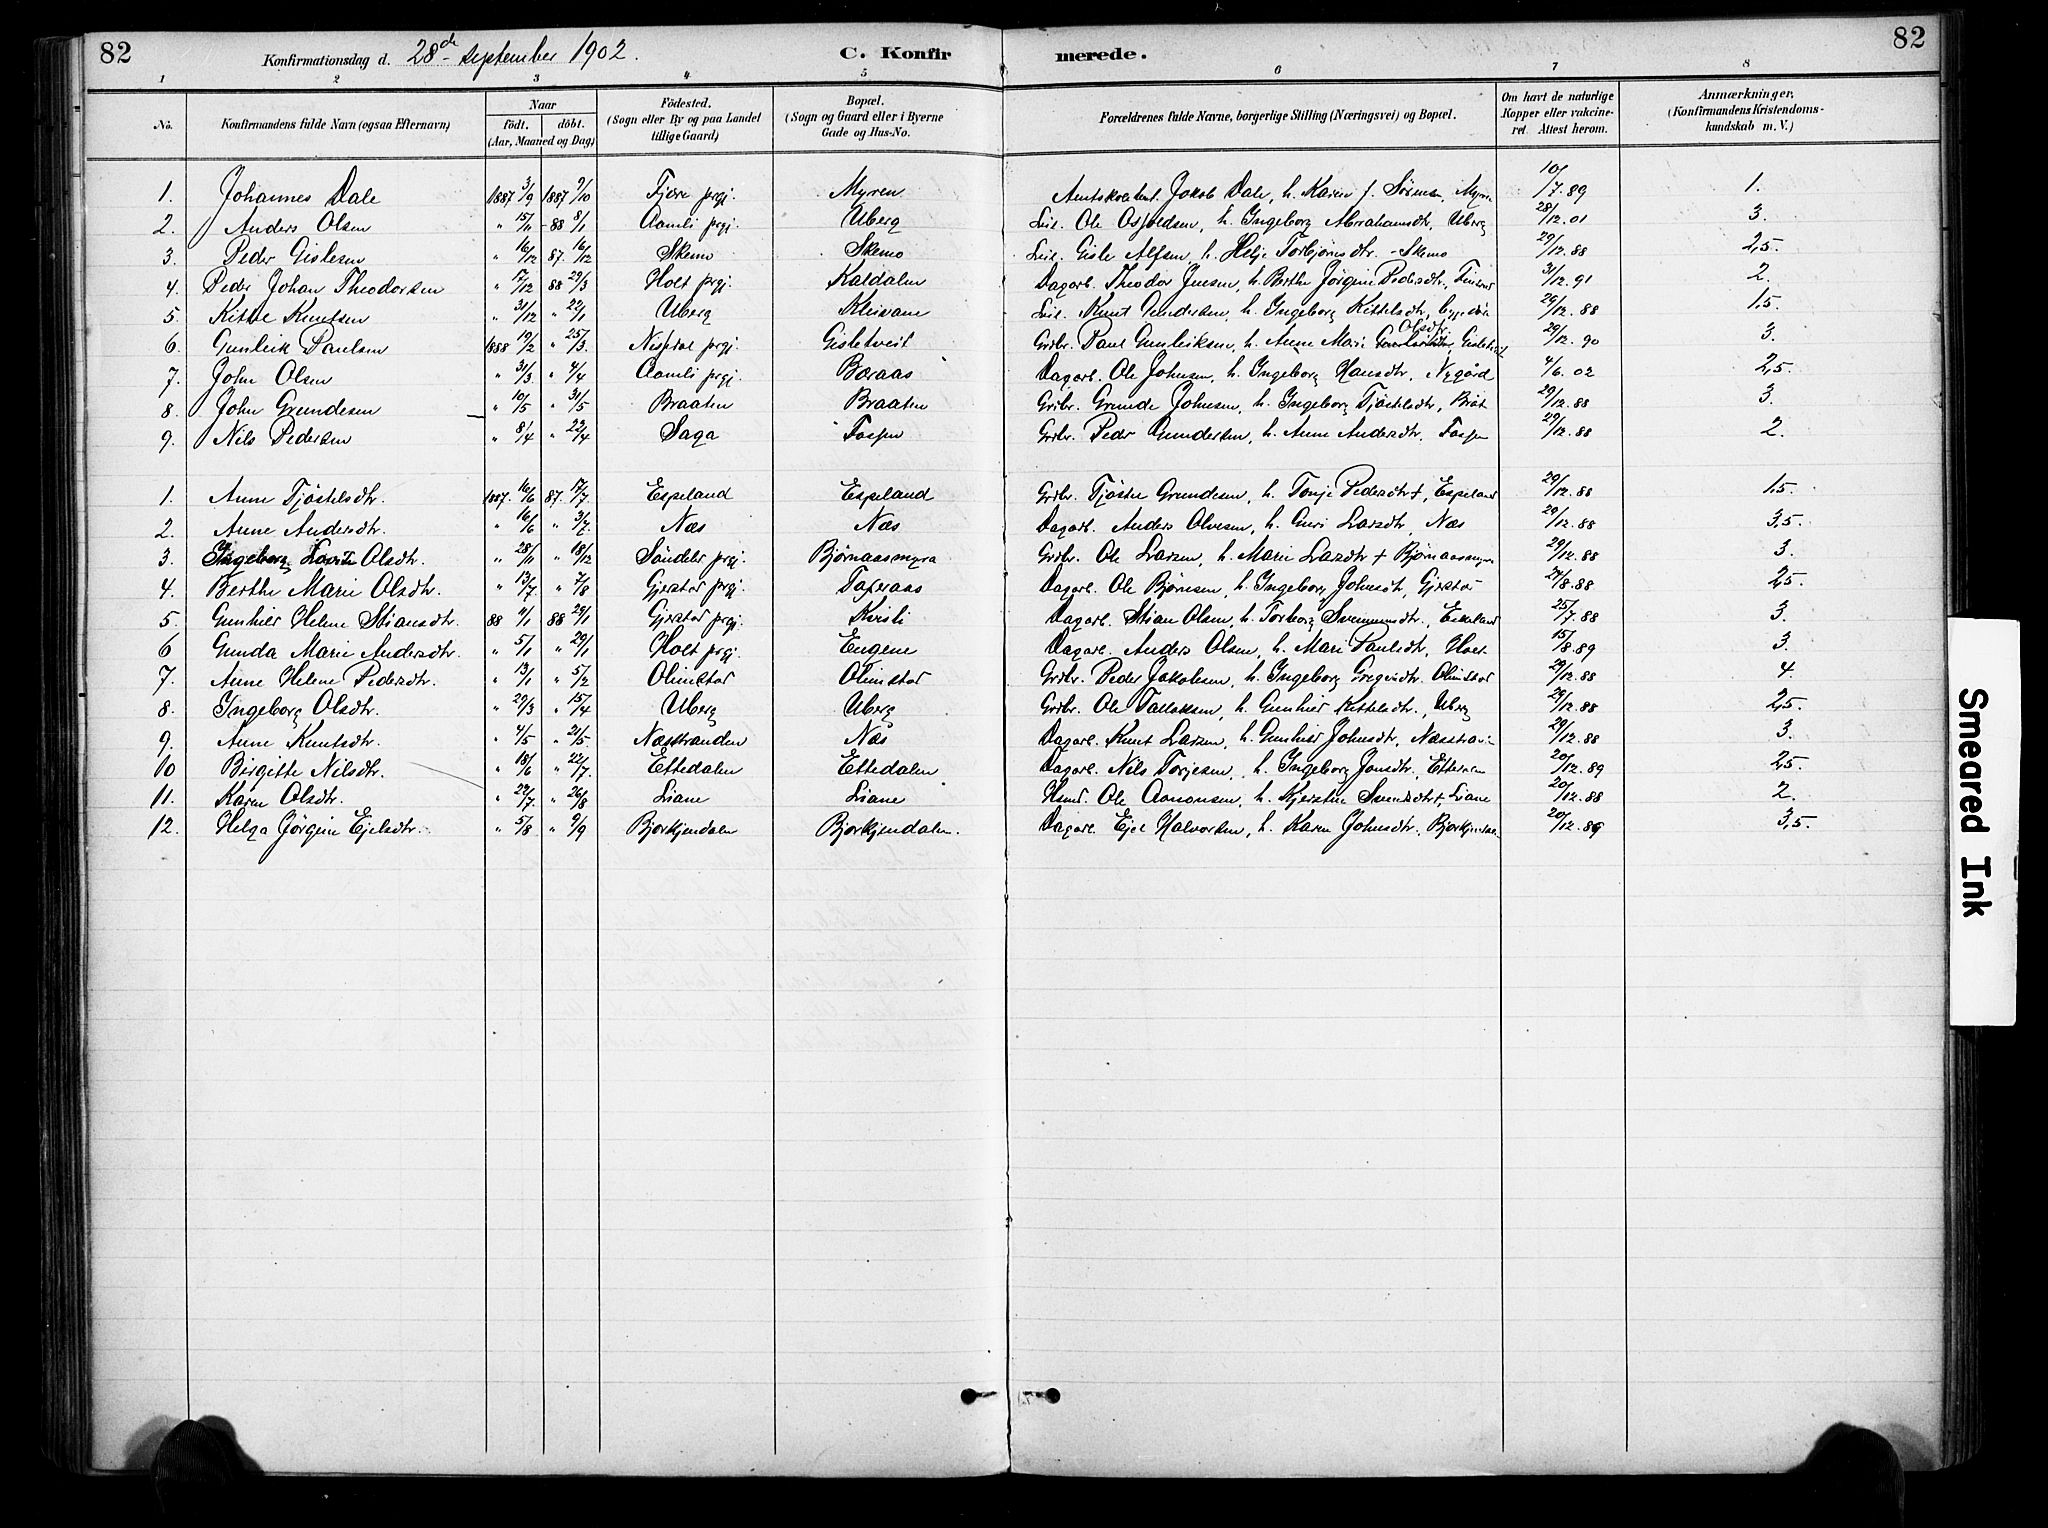 82 Konfirmationsdag d. 28de September 1902. C. Konfirmerede. 82
1 2 3 4 5 6 7 8
No. Konfirmandens fulde Navn (ogsaa Efternavn) Naar födt. döbt. (Aar, Maaned og Dag) Födested. (Sogn eller By og paa Landet tillige Gaard) Bopæl. (Sogn og Gaard eller i Byerne Gade og Hus-No. Forældrenes fulde Navne, borgerlige Stilling (Næringsvei) og Bopæl. Om havt de naturlige Kopper eller vakcineret. Attest herom. Anmærkninger. (Konfirmandens Kristendomskundskab m. V.)
1. Johannes Dale 1887 3/9 1887 9/10 Fjære prgj. Myren Jakob Dale, h. Karen f. Sørensen, Myren 10/7.89 1.
2. Anders Olsen " 15/11 -88 8/1 Aamli prgj. Uberg Leil. Ole Osfoldsen, h. Ingeborg Abrahamsdtr, Uberg 28/12.01 3.
3. Peder Gislesen " 16/12 87. 16/12 Skemo Skemo Leil. Gisle Alfsen, h. Helje Torbjørnsdtr. - Skemo 29/12.88 2,5.
4. Peder Johan Theodorsen " 17/12 88 29/3 Holt prgj. Kaldalen Dagarb. Theodor Jensen, h. Berthe Jörgine Pedersdtr, 31/12.91 2.
5. Kittel Knutsen " 31/12 " 22/1 Uberg Kleivane Leil. Knut Gundersen, h. Ingeborg Kittelsdtr, 29/12.88 1,5.
6. Gunleik Paulsen 1888 19/2 " 25/3. Nissedal prgj. Gisletveit Grdbr. Paul Gunleiksen, h. Anne Mari Olsdtr. Gisletveit 29/12.90 3.
7. John Olsen " 31/3. " 4/4 Aamli prgj. Baraas Dagarb. Ole Johnsen, h. Ingeborg Hansdtr, Nygård 4/6.02 2,5.
8. John Grundesen " 10/5 " 31/5 Braaten Braaten Grdbr. Grunde Johnsen, h. Ingeborg Tjöstelsdtr, Bråt 29/12.88 3.
9. Nils Pedersen " 8/4 " 22/4 Saga Fossen Grdbr. Peder Gundersen, h. Anne Andersdtr, Fossen 29/12.88 2.
1. Anne Tjöstelsdtr. 1887. 16/6 87. 17/7 Espeland Espeland Grdbr. Tjöstel Grundesen, h. Tonje Pedersdtr +, Espeland 29/12.88 1,5.
2. Anne Andersdtr. " 16/6 " 3/7 Næs Næs Dagarb. Anders Olvesen, h. Guri Larsdtr, Næs 29/12.88 3,5.
3. Ingeborg Olsdtr. " 28/11 " 18/12 Söndeler prgj. Bjørnaasmyra Grdbr. Ole Larsen, h. Marie Larsdtr + Bjørnaasmyra 29/12.88 3.
4. Berthe Marie Olsdtr. " 13/7 " 7/8 Gjerstad prgj. Taperaas Dagarb. Ole Bjørnsen, h. Ingeborg Johnsdtr, Gjerstad 27/8.88 2,5.
5. Gunhild Helene Stiansdtr. 88 9/1 88 29/1 Gjerstad prgj. Kvisli Dagarb. Stian Olsen, h. Torborg Svenumsdtr., Eikeland 25/7.88 3.
6 Gunda Marie Andersdtr. " 5/1 " 29/1 Holt prgj. Eugene Dagarb. Anders Olsen, h. Mari Paulsdtr, Holt 15/8.89 3.
7. Anne Helene Pedersdtr. " 13/1 " 5/2 Olimstad Olimstad Grdbr. Peder Jakobsen, h. Ingeborg Gregersdtr. Olimstad 29/12.88 4.
8. Ingeborg Olsdtr. " 29/3 " 15/4 Uberg Uberg Grdbr. Ole Tallaksen, h. Gunhild Kittelsdtr., Uberg 29/12.88 2,5.
9. Anne Knutsdtr. " 4/5 " 21/5. Næsstranden Næs Dagarb. Knut Larsen, h. Gunhild Johnsdtr, Næsstran- 29/12.88 3.
10 Birgitte Nilsdtr. " 18/6 " 22/7. Ettedalen Ettedalen Dagarb. Nils Torjesen, h. Ingeborg Jonsdtr, 20/12.89 2,5.
11. Karen Olsdtr. " 27/7 " 26/8 Liane Liane Hsmd. Ole Aanonsen, h. Kjerstine Svendsdtr + Liane 20/12.88 2.
12. Helga Jörgine Ejelsdtr. " 5/8 " 9/9 Bjorkjendalen Bjorkjendalen. Dagarb. Ejel Halvorsen, h. Karen Johnsdtr. Bjorkjendalen 20/12.89 3,5.
Smeared Ink